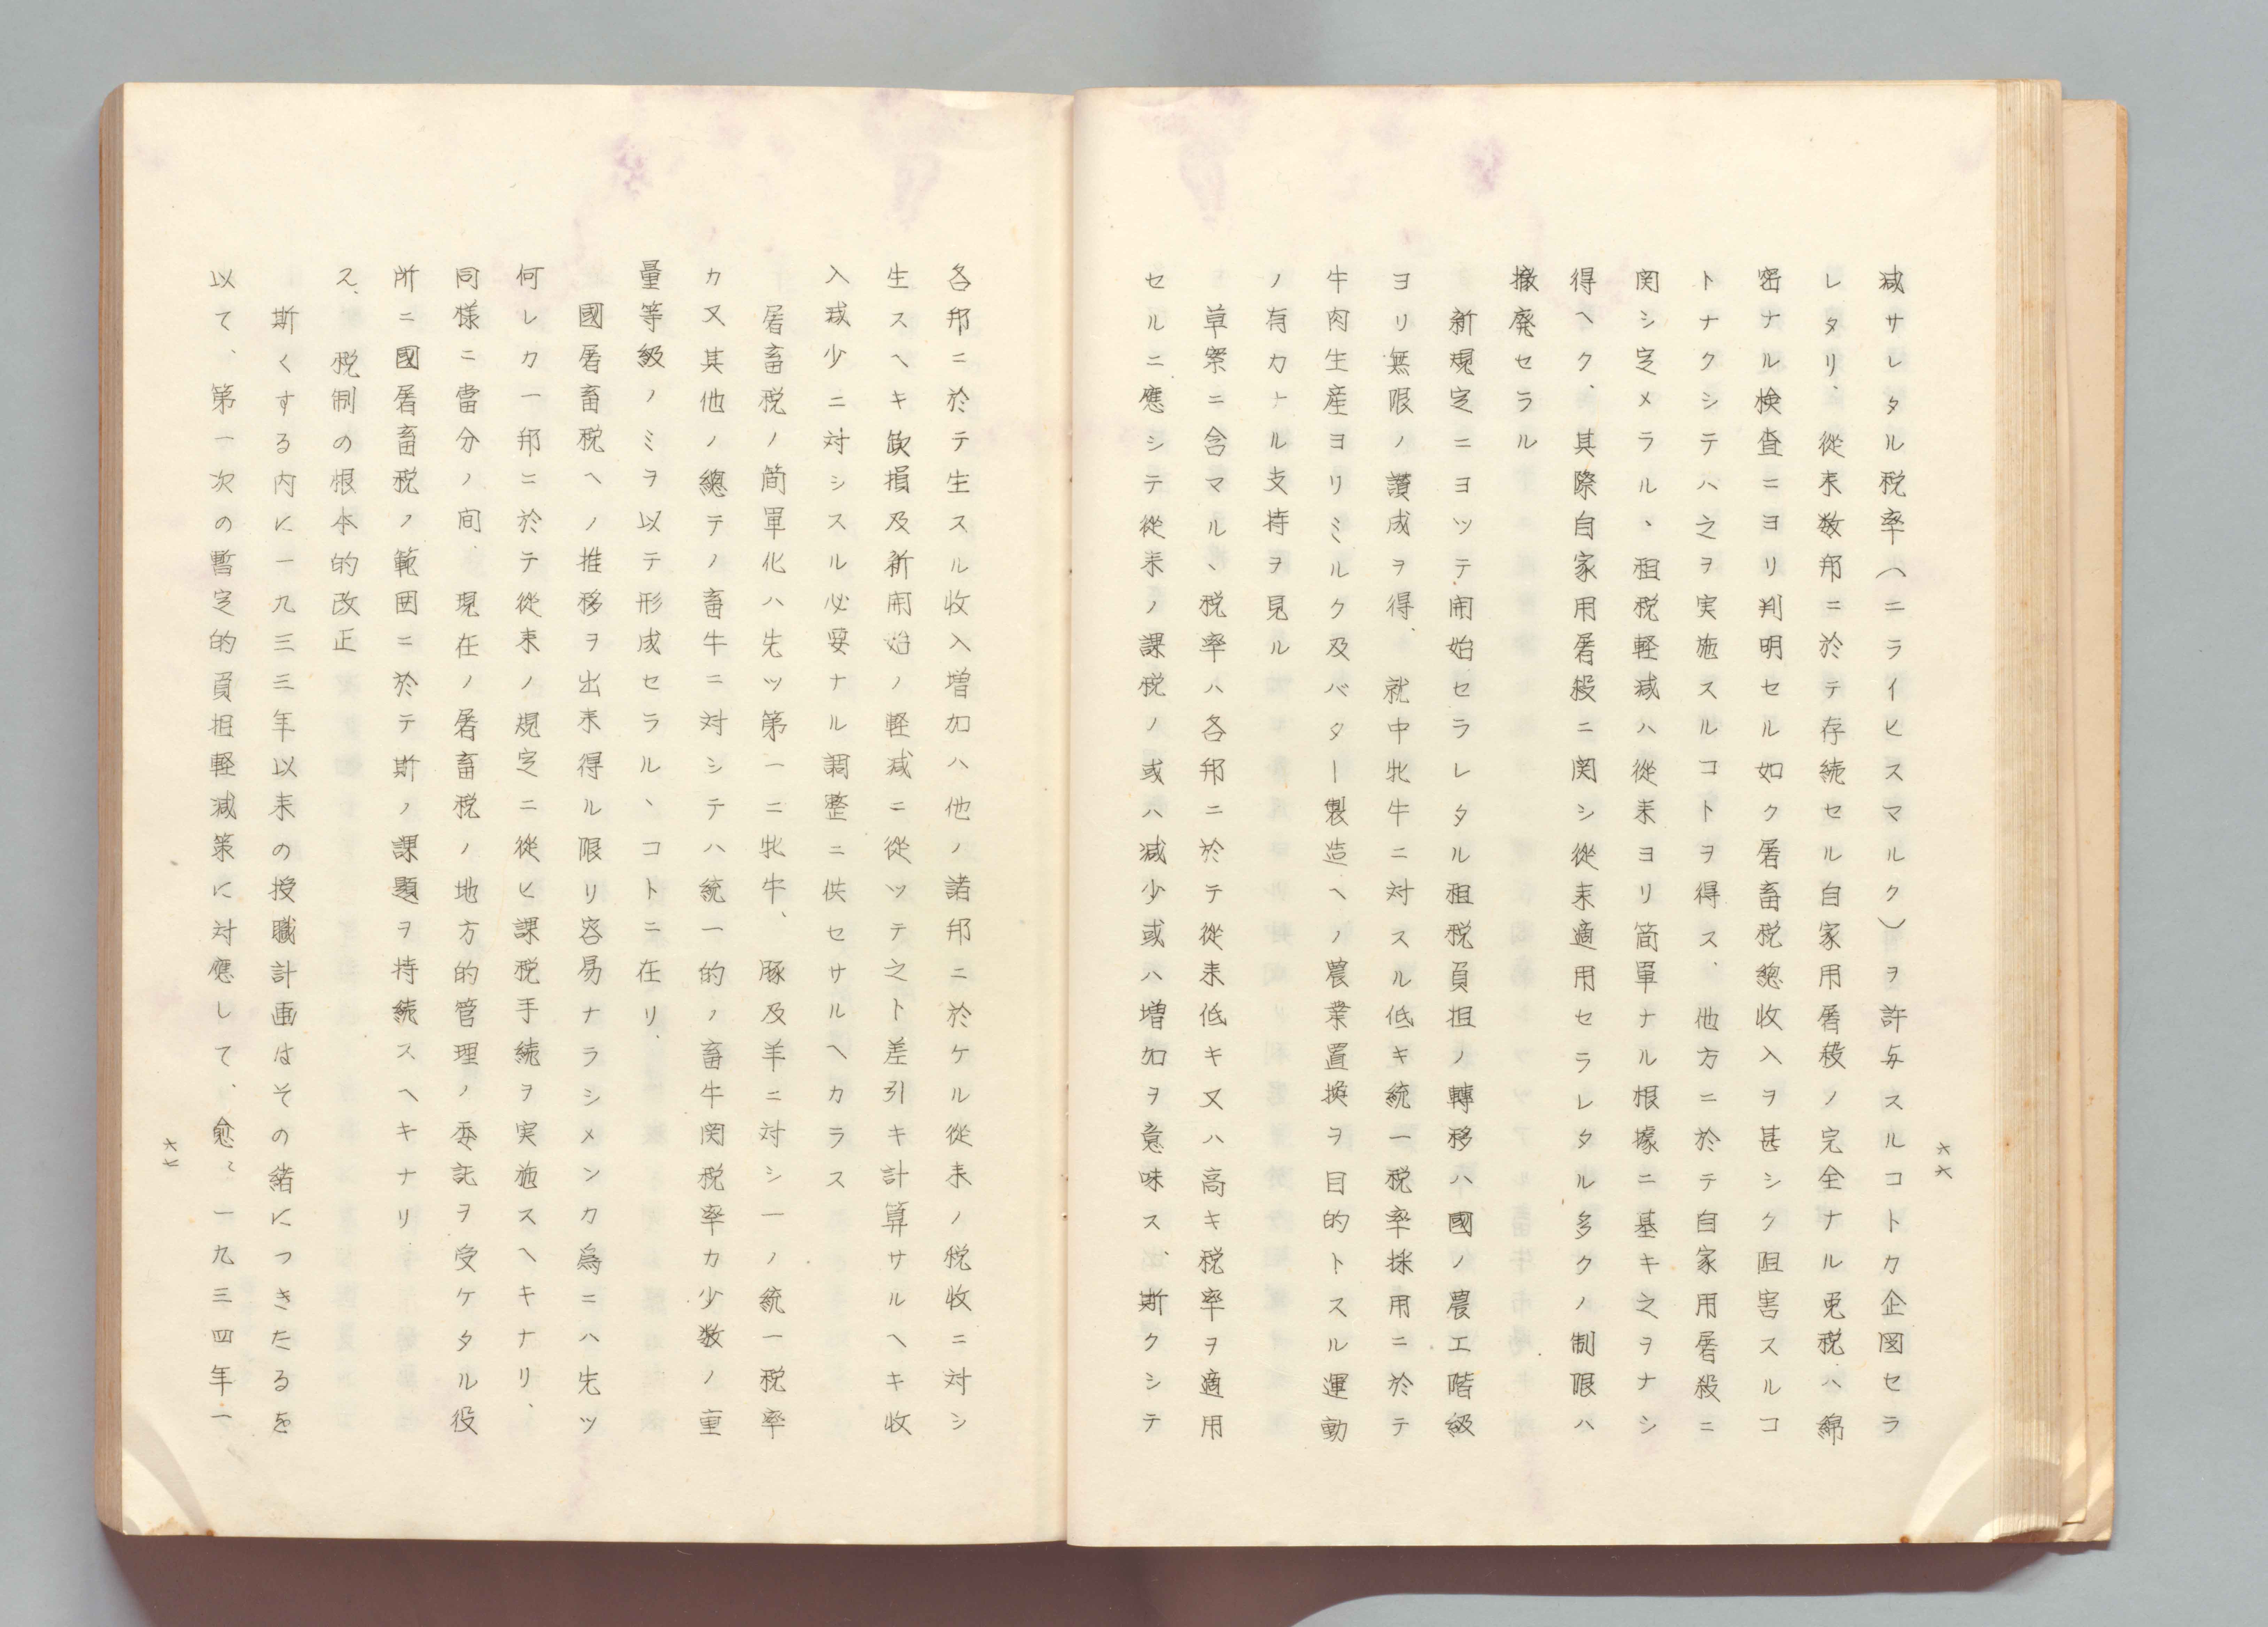 減サレタル税率(ハニライヒスマルク)ヲ許与スルコトカ企図セラ
レタリ、従来数邦ニ於テ存続セル自家用屠殺ノ完全ナル免税ハ綿
密ナル検査ニヨリ判明セル如ク屠畜税總收入ヲ甚シク阻害スルコ
トナクシテハ之ヲ実施スルコトヲ得ス、他方ニ於テ自家用屠殺ニ
関シ定メラルヽ租税軽減ハ從来ヨリ简單ナル根據ニ基キ之ヲナシ
得ヘク、其際自家用屠殺ニ関シ從来適用セラレタル多クノ制限ハ
撤廃セラル
新規定ニヨツテ開始セラレタル租税負担ノ轉移ハ國ノ農工階級
ヨリ無限ノ讃成ヲ得、就中牝牛ニ対スル低キ統一税率採用ニ於テ
牛肉生産ヨリミルク及バター製造ヘノ農業置換ヲ目的トスル運動
ノ有力ナル支持ヲ見ル
草案ニ含マルヽ税率ハ各邦ニ於テ從来低キ又ハ高キ税率ヲ適用
セルニ應シテ從来ノ課税ノ或ハ減少或ハ増加ヲ意味ス、斯クシテ
六六
各邦ニ於テ生スル收入増加ハ他ノ諸邦ニ於ケル從来ノ税收ニ対シ
生スヘキ欽損及新開始ノ軽減ニ從ツテ之ト差引キ計算サルヘキ收
入減少ニ対シスル必要ナル調整ニ供セサルヘカラス
屠畜税ノ简單化ハ先ツ第一ニ牝牛、豚及羊ニ対シ一ノ統一税率
カ又其他ノ總テノ畜牛ニ対シテハ統一的ノ畜牛関税率カ少数ノ重
量等級ノミヲ以テ形成セラルヽコトニ在リ、
國屠畜税ヘノ推移ヲ出来得ル限リ容易ナラシメンカ為ニハ先ツ
何レカ一邦ニ於テ從来ノ規定ニ從ヒ課税手続ヲ実施スヘキナリ、
同様ニ當分ノ间、現在ノ屠畜税ノ地方的管理ノ委託ヲ受ケタル役
所ニ國屠畜税ノ範囲ニ於テ斯ノ課題ヲ持続スヘキナリ、
ス、税制の根本的改正
斯くする内に一九三三年以来の授職計画はその緒につきたるを
以て、第一次の暫定的負担軽減策に対應して、愈〻一九三四年一
六七